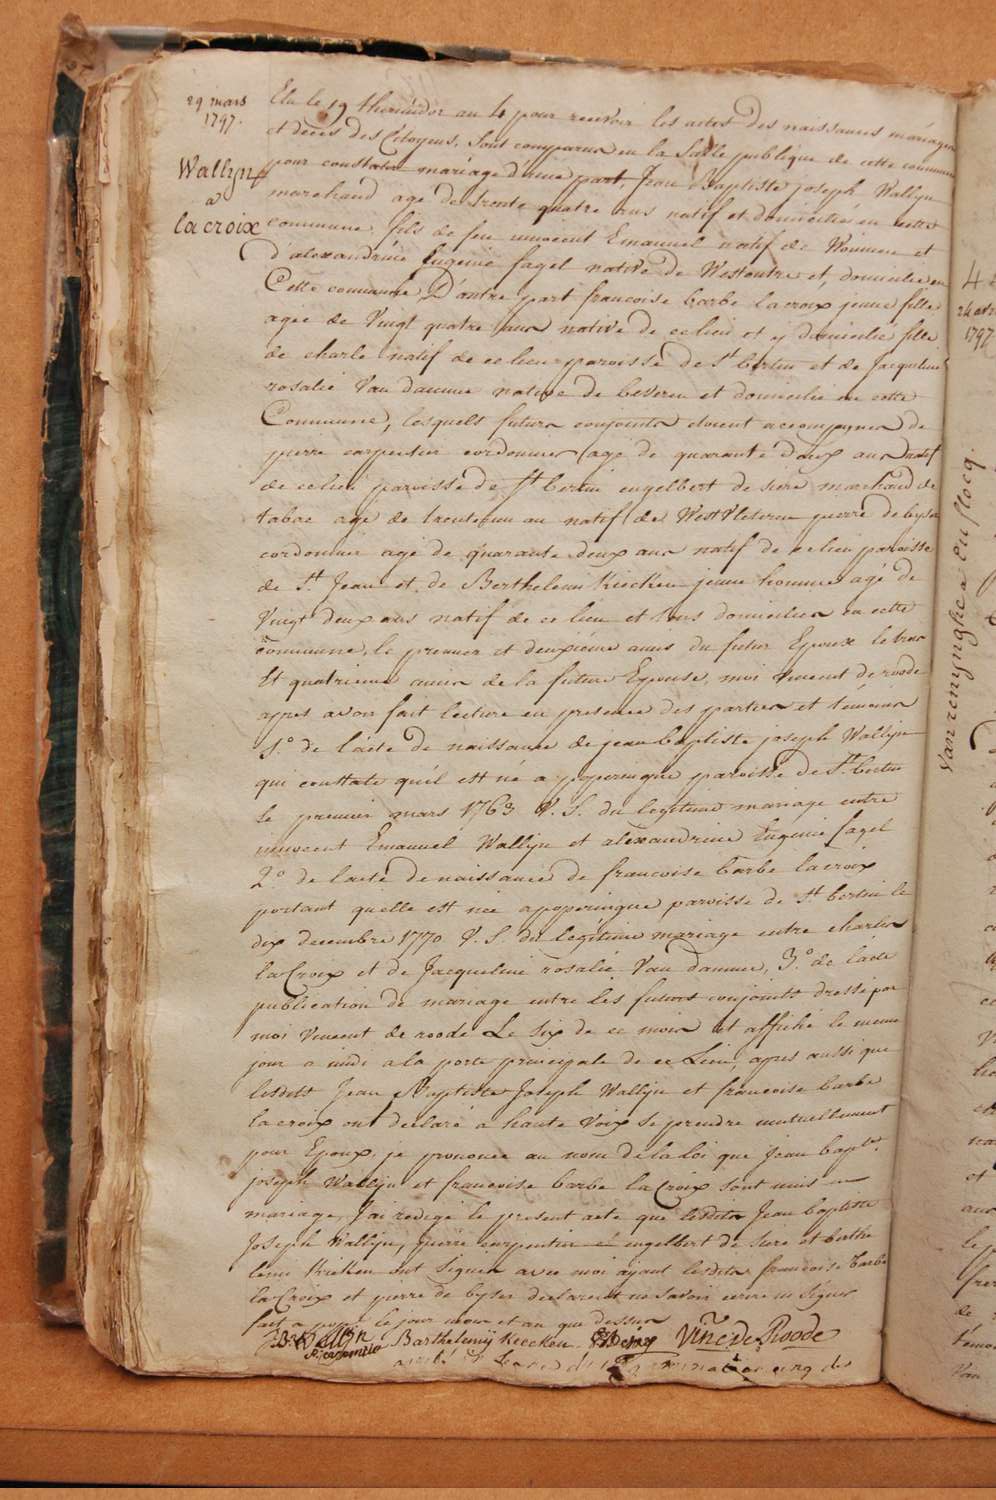 29 mars
1797.
Wallyn
a
lacroix
Elu le 19 thermidor an 4 pour recevoir les actes des naissances mariages
et décès des Citoyens, Sont comparus en la Salle publique de cette commune
pour constater mariage d'une part, Jean Baptiste joseph Wallyn
marchand agé de trente quatre ans natif et domicilié en cette
commune fils de feu innocent Emanuel natif de Woumen et
d'alexandrine Eugenie fagel native de Westoutre et domiciliée en
Cette commune D'autre part francoise barbe lacroix jeune fille
agee de Vingt quatre ans native de ce lieu et y domicilié fille
de charle natif de ce lieu paroisse de St bertin et de Jacqueline
rosalie Van damme native de beveren et domicilié en cette
Commune, lesquels futurs conjoints etoient accompagnes de
pierre carpentier cordonnier agé de quarante deux ans natif
de ce lieu paroisse de St bertin engelbert de sere marchand de
tabac agé de trente un an natif de WestVleteren pierre de byser
cordonnier agé de quarante deux ans natif de ce lieu paroisse
de St Jean et de Berthelemi Kiecken jeune homme agé de
Vingt deux ans natif de ce lieu et tous domicilies en cette
commune, le premier et deuxième amis du futur Epoux le trois
Et quatrieme amis de la future Epouse, moi Vincent de roode
apres avoir fait lecture en presence des parties et témoins
1.° de l'acte de naissance de jean baptiste joseph Wallyn
qui constate qu'il est né a poperingue paroisse de St bertin
le premier mars 1763 V. S. du legitime mariage entre
innocent Emanuel Wallyn et alexandrine Eugenie fagel
2.° de lacte de naissance de francoise barbe lacroix
portant quelle est née a poperingue paroisse de St bertin le
dix decembre 1770 V. S. du legitime mariage entre charles
la Croix et de Jacqueline rosalie Van damme, 3.° de lacte
publication de mariage entre les futurs conjoints dressé par
moi Vincent de roode Le Six de ce mois et affiché le meme
jour a midi a la porte principale de ce Lieu, apres aussi que
lesdits Jean Baptiste Joseph Wallyn et francoise barbe
la croix ont declaré a haute Voix se prendre mutuellement
pour Epoux, je prononce au nom de la loi que Jean bapte
joseph Wallyn et francoise barbe la Croix sont unis en
mariage, J'ai redigé le present acte que lesdits Jean baptiste
Joseph Wallyn, pierre carpentier et engelbert de sere et berthe
lemi Kieken ont signés avec moi ayant lesdits francoise barbe
la Croix et pierre de byser declarent ne savoir ecrire ni signer
fait a le jour mois et an que dessus
J:B:Wallyn Barthelemÿ Keecken Vinc. de Roode
P: Carpentie
4
24 avril
1797
Vanrenynghe a en flocq.